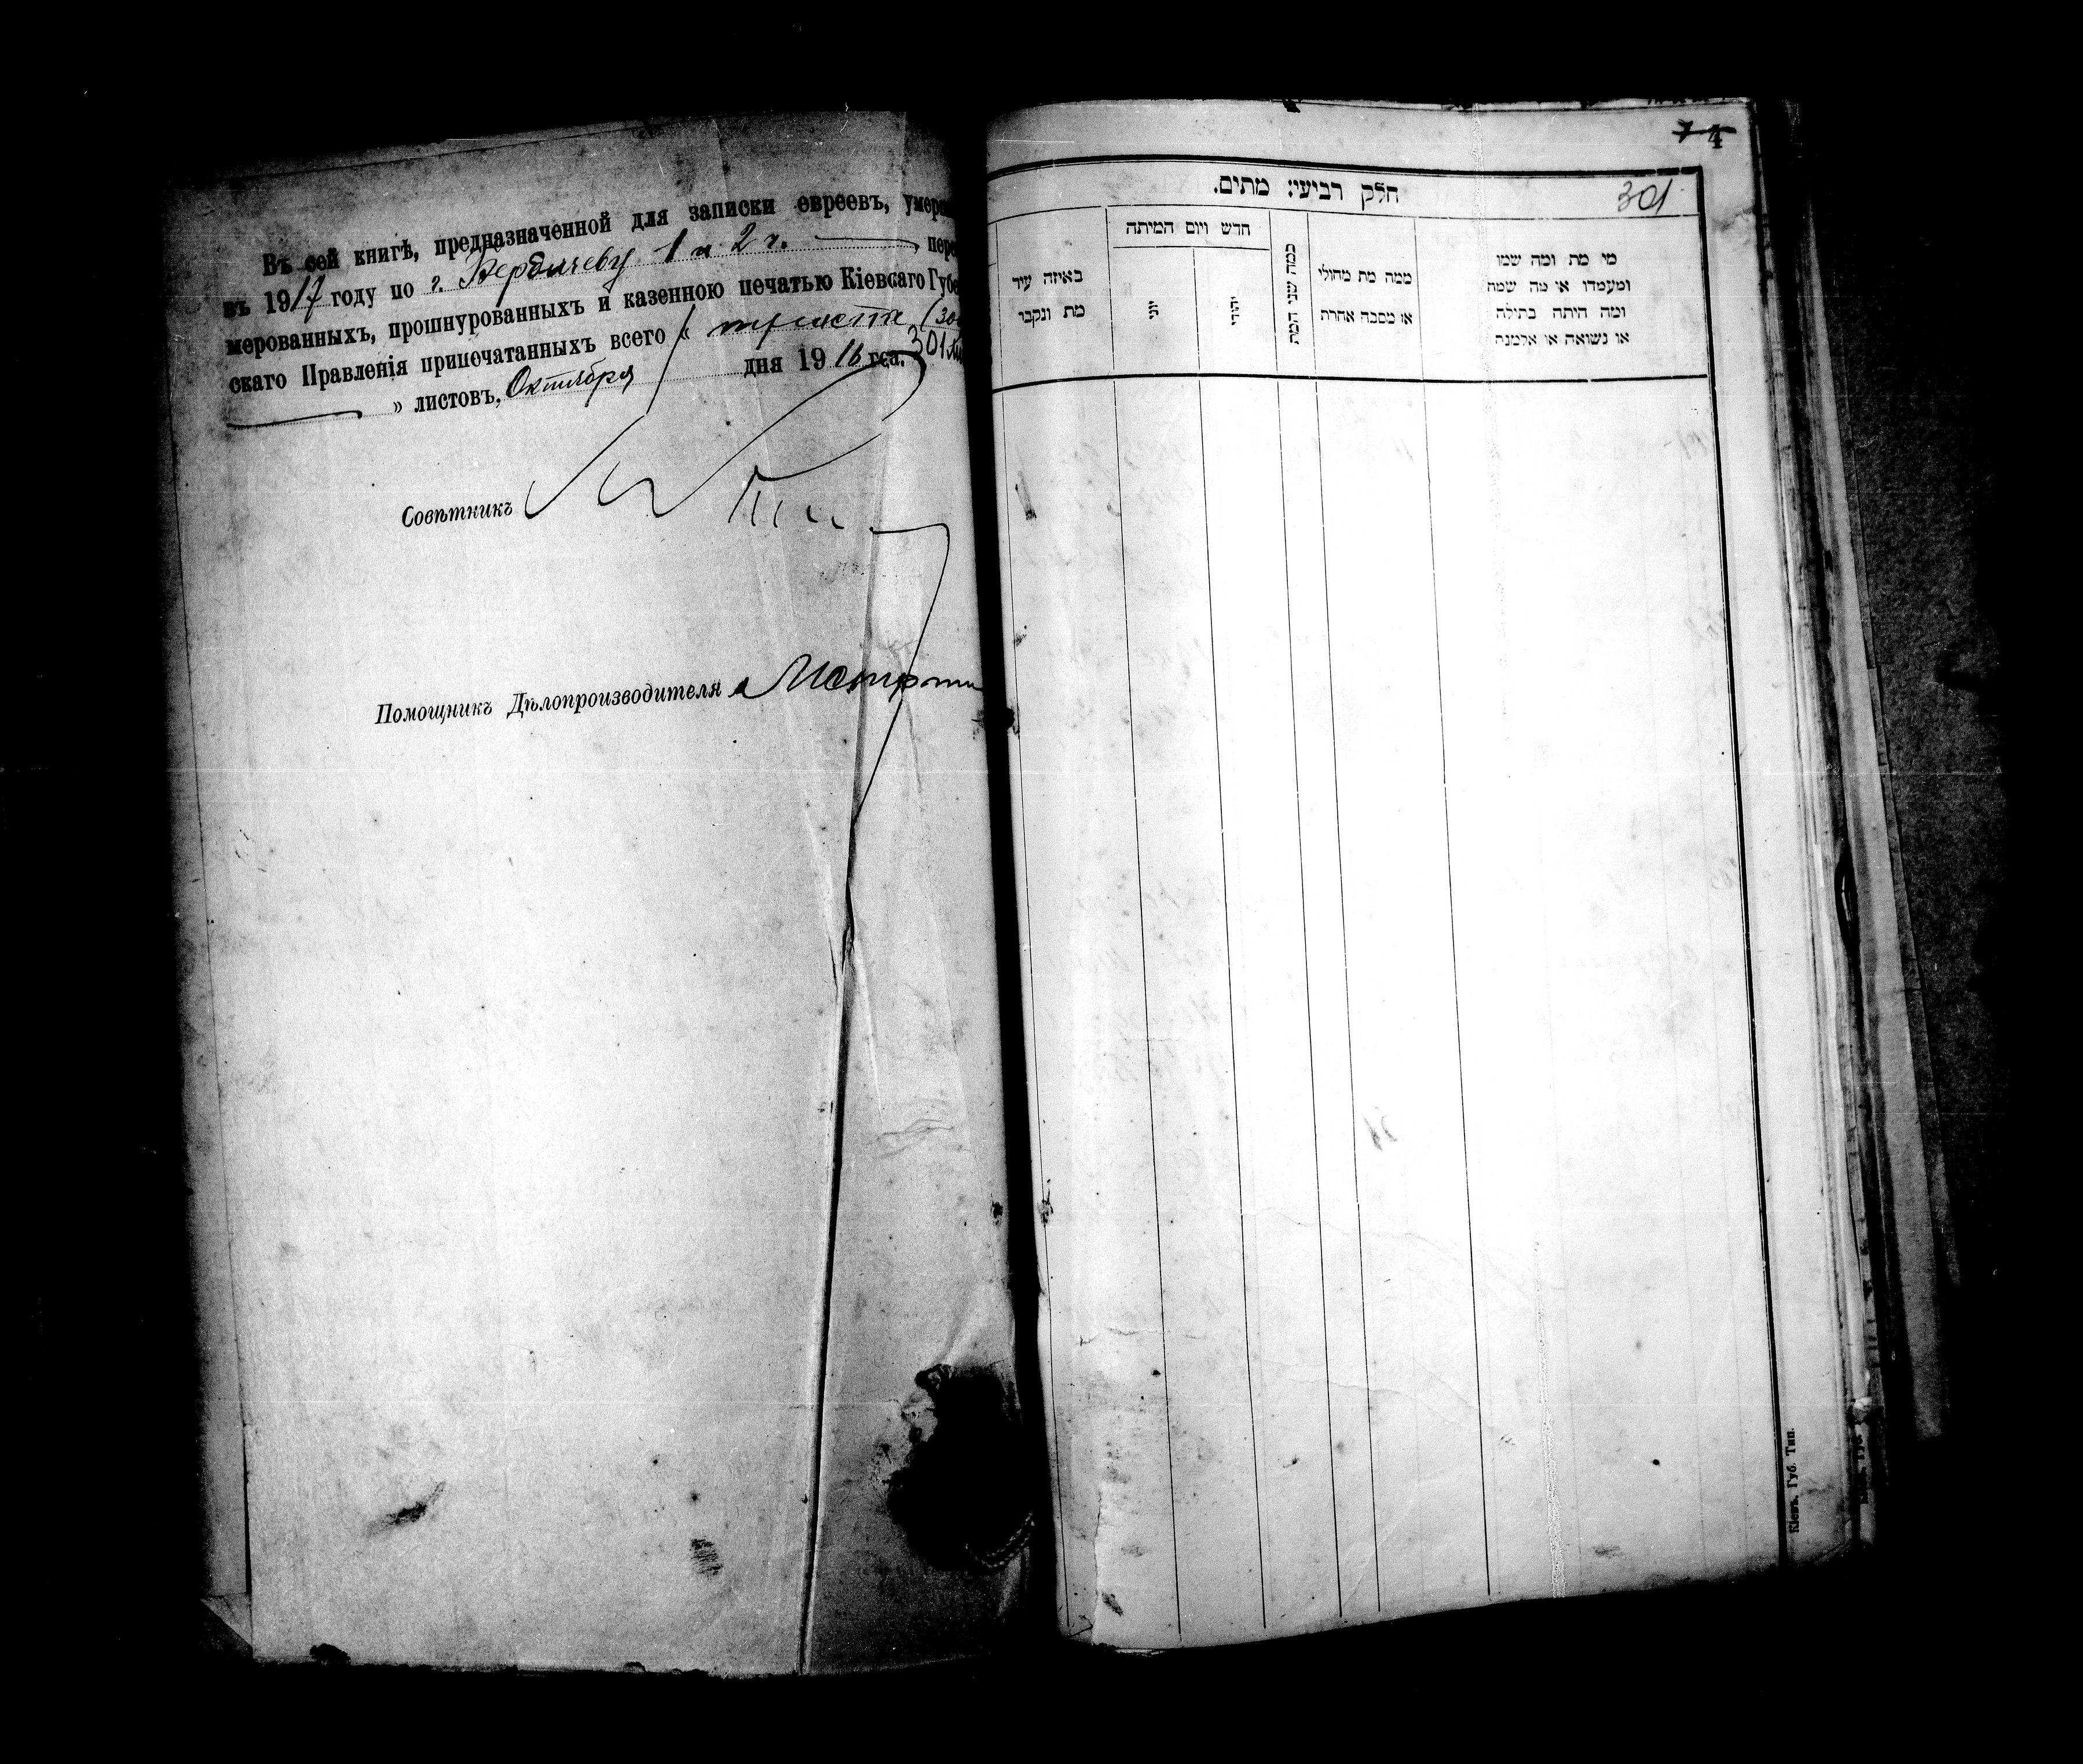 Въ сей книгѣ, предназначенной для записки евреевъ,
въ 1917 году по г. Бердичеву 1 и 2 ч.
мерованныхъ, прошнурованныхъ и казенною печатью Кіевсаго
скаго Правленія припечатанныхъ всего « триста
» листовъ, Октября дня 1916 года. 301
Совѣтникъ
Помощникъ Дѣлопроизводителя
4
301
חלק רביעי: מתים.
מי מת ומה שמו
ומעמדו או מה שמה
ומה היתה בתולה
או נשואה או אלמנה
ממה מת מחולי
או מסבה אחרת
כמה שני המת
חדש ויום המיתה
יהודי
יוני
באיזה עיר
מת ונקבר
Кіевъ. Губ. Тип.